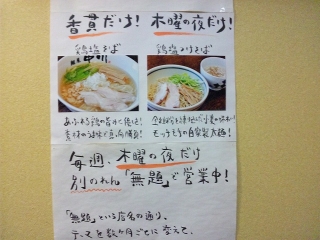 香貫だけ! 木曜の夜だけ!
鶏塩そば 鶏塩つけそば
あふれる鶏の旨味と
モッチモチの自家製太麺!
毎週、木曜の夜だけ
別のれん「無題」で営業中!
「無題」という店名の通り、
テーマを数ヶ月ごとに変えて、